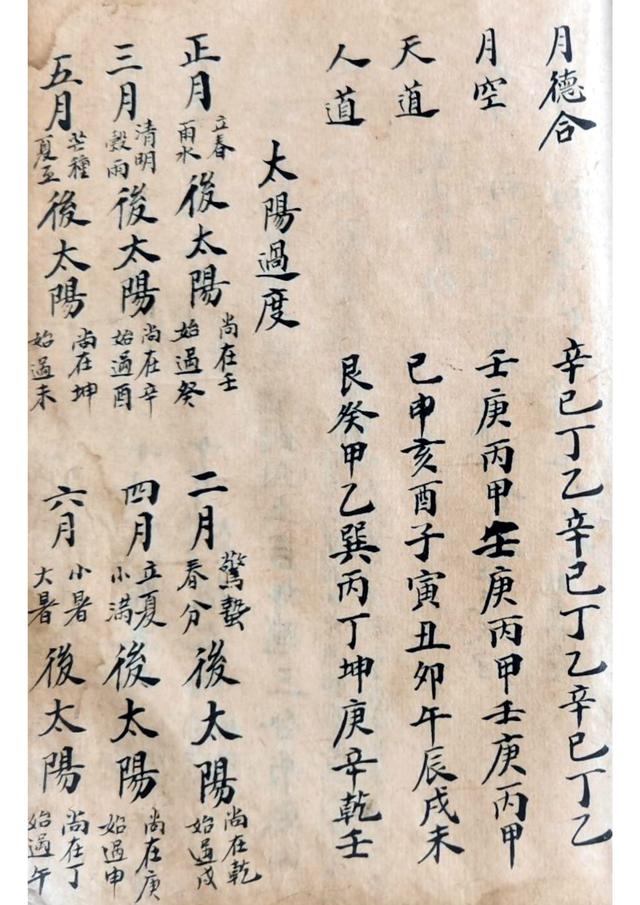 月德合 辛巳丁乙辛巳丁乙辛巳丁乙
月空 壬庚丙甲壬庚丙甲壬庚丙甲
天道 巳申亥酉子寅丑卯午辰戌未
人道 艮癸甲乙巽丙丁坤庚辛乾壬
太陽過度
正月 立春 雨水 後太陽 尚在壬 始過癸 二月 驚蟄 春分 後太陽 尚在乾 始過戌
三月 清明 穀雨 後太陽 尚在辛 始過酉 四月 立夏 小滿 後太陽 尚在庚 始過申
五月 芒種 夏至 後太陽 尚在坤 始過未 六月 小暑 大暑 後太陽 尚在丁 始過午